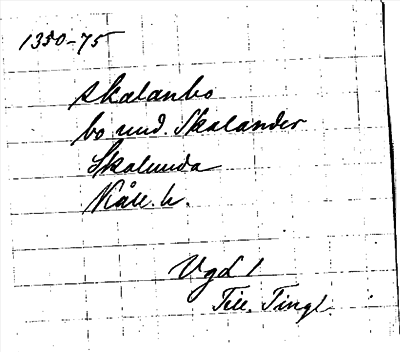 1350-75
skalanbo
bo und. Skalander
Skalunda
Kåll. h.
Vgl 1
Till. Tingl.